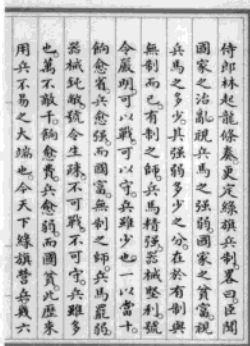 侍郎林起龍條奏更定綠旗兵制畧曰臣聞
國家之治亂視兵馬之强弱國家之貧富視
兵馬之多少其强弱多少之分在於有制與
無制而已有制之師兵馬精强器械堅利號
令嚴明可以戰可以守兵雖少也一以當十
餉愈省兵愈强而國富無制之師兵馬罷弱
器械鈍敝號令生疎不可戰不可守兵雖多
也萬不敵千餉愈費兵愈弱而國貧此歷來
用兵不易之大端也今天下綠旗營兵幾六